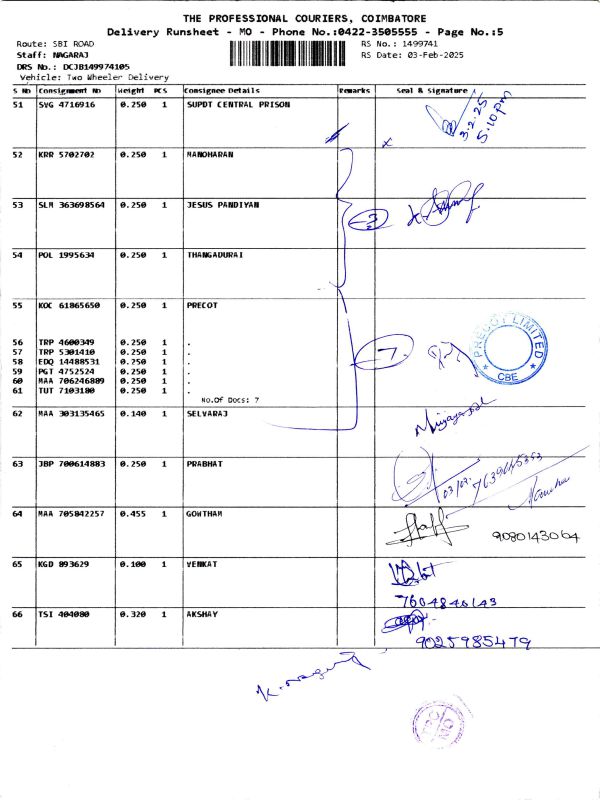 THE PROFESSIONAL COURIERS, COIMBATORE
Delivery Runsheet - MO - Phone No.:0422-3505555 - Page No.:5
Route: SBI ROAD RS No.: 1499741
Staff: NAGARAJ RS Date: 03-Feb-2025
DRS No.: DCJB149974105
Vehicle: Two Wheeler Delivery
S No Consignment No Weight PCS Consignee Details Remarks Seal & Signature
51 SVG 4716916 0.250 1 SUPDT CENTRAL PRISON
3.2.25
5.10 pm
52 KRR 5702702 0.250 1 MANOHARAN
53 SLM 363698564 0.250 1 JESUS PANDIYAN
54 POL 1995634 0.250 1 THANGADURAI
55 KOC 61865650 0.250 1 PRECOT
PRECOT LIMITED
CBE
7
56 TRP 4600349 0.250 1 .
57 TRP 5301410 0.250 1 .
58 EDQ 14488531 0.250 1 .
59 PGT 4752524 0.250 1 .
60 MAA 706246889 0.250 1 .
61 TUT 7103180 0.250 1 .
No.Of Docs: 7
62 MAA 303135465 0.140 1 SELVARAJ
63 JBP 700614883 0.250 1 PRABHAT
64 MAA 705842257 0.455 1 GOWTHAM
9080143064
65 KGD 893629 0.100 1 VENKAT
7604846143
66 TSI 404080 0.320 1 AKSHAY
9025985479